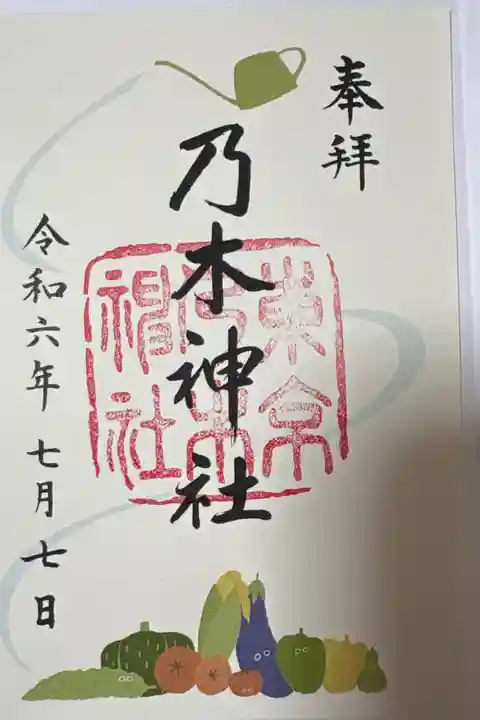 奉拝
乃木神社
東京
乃木
神社
令和六年 七月七日